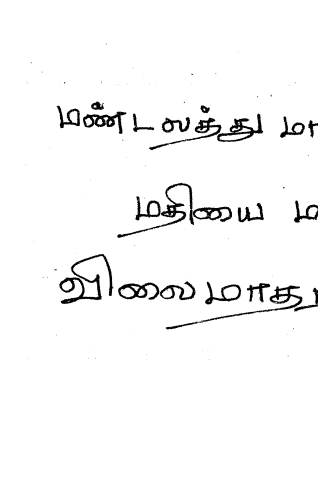 மண்டலத்து மா
மதியை ம
விலைமாதர